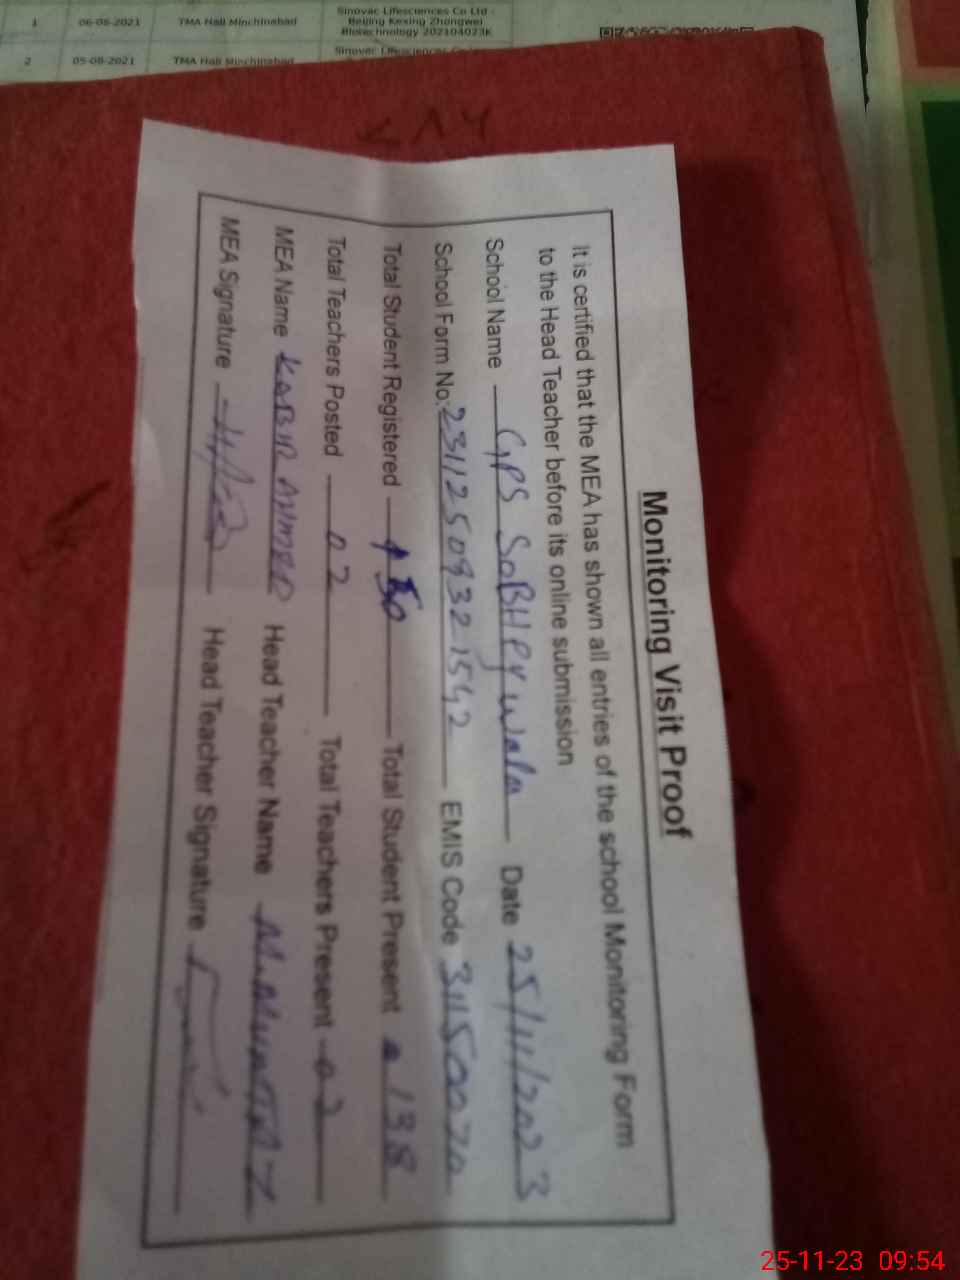 1 06-08-2021 TMA Hall Minchinabad Sinovac Lifesciences Co Ltd - Beijing Kexing Zhongwei Biotechnology 202104023K
2 05-08-2021 TMA Hall Minchinabad Sinovac Lifesciences
Monitoring Visit Proof
It is certified that the MEA has shown all entries of the school Monitoring Form
to the Head Teacher before its online submission
School Name GPS SoBHeywala Date 25/11/2023
School Form No: 23112509321542 EMIS Code 31150070
Total Student Registered 150 Total Student Present 138
Total Teachers Posted 02 Total Teachers Present 02
MEA Name KABIR AHMED Head Teacher Name
MEA Signature Head Teacher Signature
25-11-23 09:54